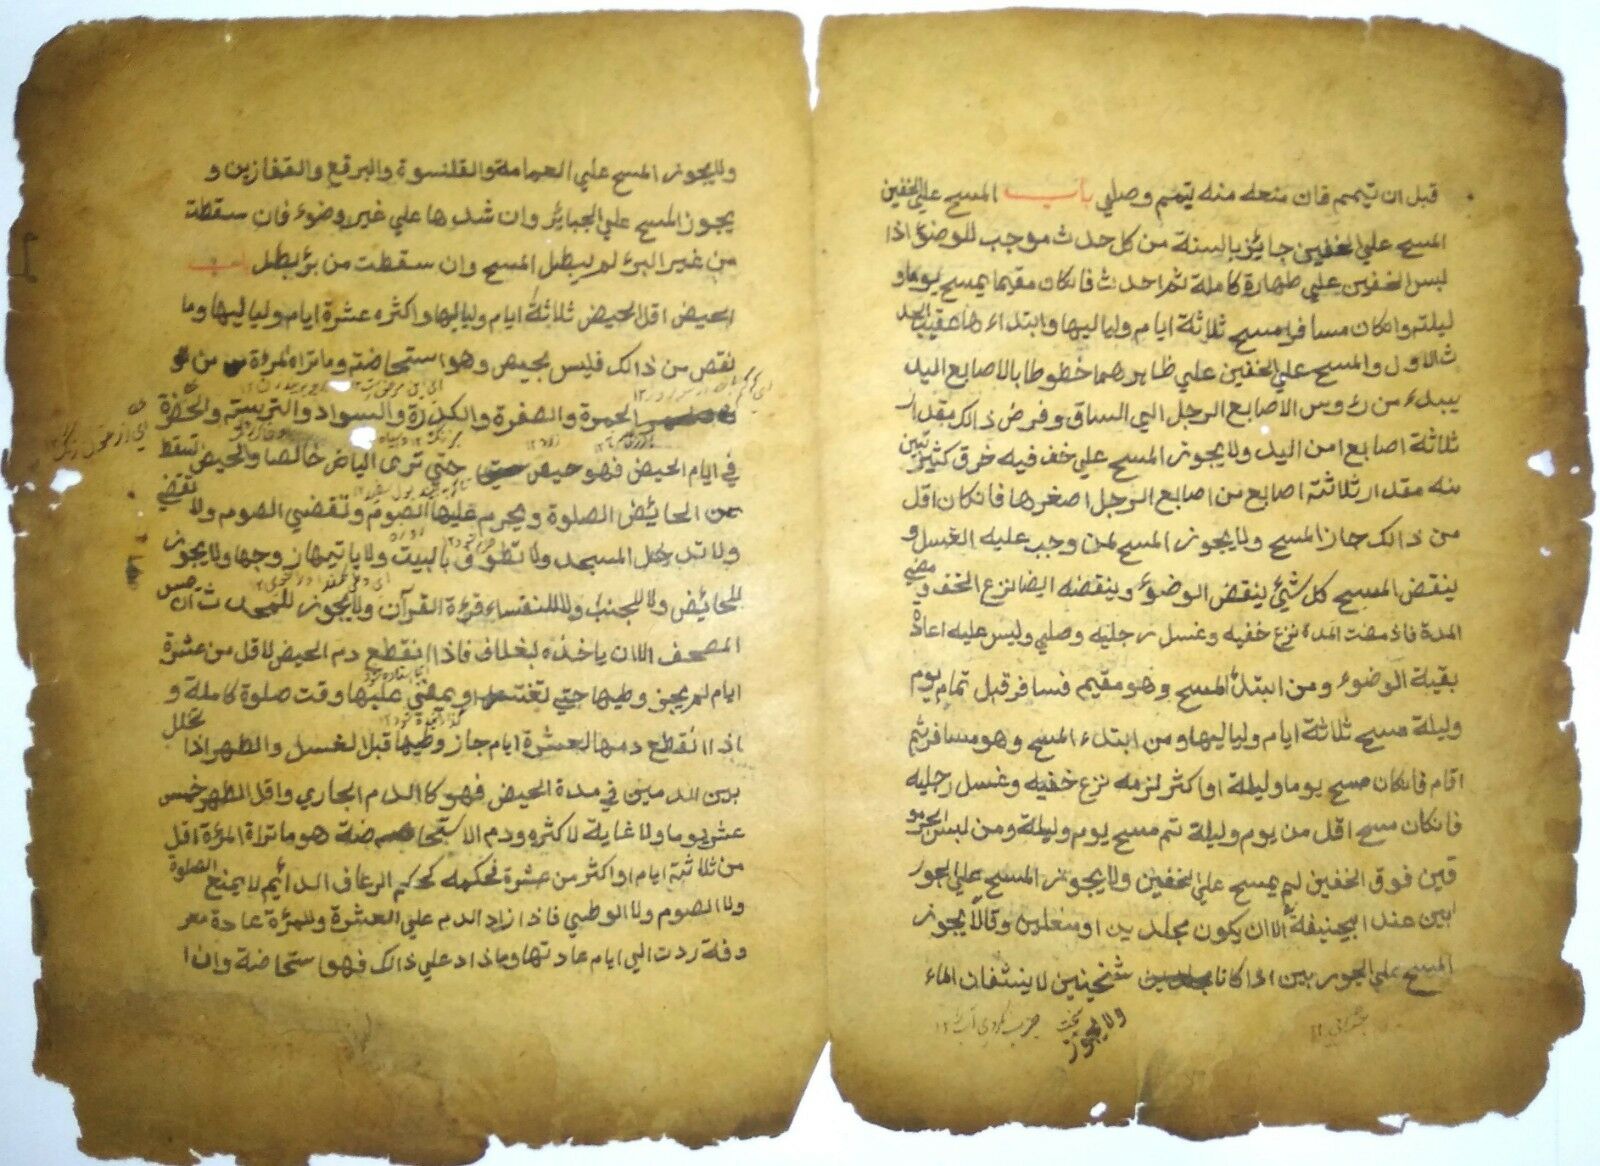 قبل ان يتيمم فان منعه منه يتيمم وصلي باب المسح علي الخفين
المسح علي الخفين جايز بالسنة من كل حدث موجب للوضوء اذا
لبس الخفين علي طهارة كاملة ثم احدث فانكان مقيما يمسح يوما و
ليلة وانكان مسافرا مسح ثلاثة ايام ولياليها وابتداءها عقيب الحد
ث الاول والمسح علي الخفين علي ظاهرهما خطوطا بالاصابع اليد
يبدء من رءوس الاصابع الرجل الي الساق وفرض ذالك مقدار
ثلاثة اصابع من اليد ولا يجوز المسح علي خف فيه خرق كثير تبين
منه مقدار ثلاثة اصابع من اصابع الرجل اصغرها فانكان اقل
من ذالك جاز المسح ولا يجوز المسح لمن وجب عليه الغسل و
ينقض المسح كل شيئ ينقض الوضوء وينقضه ايضا نزع الخف و مضي
المدة فاذ مضت المدة نزع خفيه وغسل رجليه وصلي وليس عليه اعادة
بقية الوضوء ومن ابتدئ المسح وهو مقيم فسافر قبل تمام يوم
وليلة مسح ثلاثة ايام ولياليها ومن ابتداء المسح وهو مسافر ثم
اقام فانكان مسح يوما وليلة او اكثر لزمه نزع خفيه وغسل رجليه
فانكان مسح اقل من يوم وليلة تم مسح يوم وليلة ومن لبس الجرمو
قين فوق الخفين لم يمسح علي الخفين ولا يجوز المسح علي الجور
ابين عند ابيحنيفة الا ان يكون مجلدين او منعلين وقالا يجوز
المسح علي الجوربين اذا كانا شخينين لا ينشفان الماء
ولا يجوز
ولا يجوز المسح علي العمامة والقلنسوة والبرقع والقفازين و
يجوز المسح علي الجبائر وان شدها علي غير وضوء فان سقطة
من غير البرؤ لم يبطل المسح وان سقطت من برؤ بطل باب
الحيض اقل الحيض ثلاثة ايام ولياليها واكثره عشرة ايام ولياليها وما
نقص من ذالك فليس بحيض وهو استحاضة وما تراه المرءة من
الحمرة والصفرة والكدرة والسواد والتربية والخضرة
في ايام الحيض فهو حيض حتي تري البياض خالصا والحيض تسقط
عن الحائض الصلوة ويحرم عليها الصوم وتقضي الصوم ولا تقضي
ولا تدخل المسجد ولا تطوف بالبيت ولا ياتيها زوجها ولا يجوز
للحائض ولا للجنب ولا للنفساء قرءة القرآن ولا يجوز للمحدث ان مس
المصحف الا ان ياخذه بغلاف فاذا انقطع دم الحيض لاقل من عشرة
ايام لم يجز وطيها حتي تغتسل او يمضي عليها وقت صلوة كاملة و
اذا انقطع دمها لعشرة ايام جاز وطيها قبل الغسل والطهر اذا تخلل
بين الدمين في مدة الحيض فهو كالدم الجاري واقل الطهر خمس
عشر يوما ولا غاية لاكثره ودم الاستحاضة هو ما تراة المرءة اقل
من ثلاثة ايام او اكثر من عشرة فحكمه كحكم الرعاف الدائم لا يمنع الصلوة
ولا الصوم ولا الوطي فاذا زاد الدم علي العشرة وللمرءة عادة معر
وفة ردت الي ايام عادتها وما زاد علي ذالك فهو استحاضة وان ا